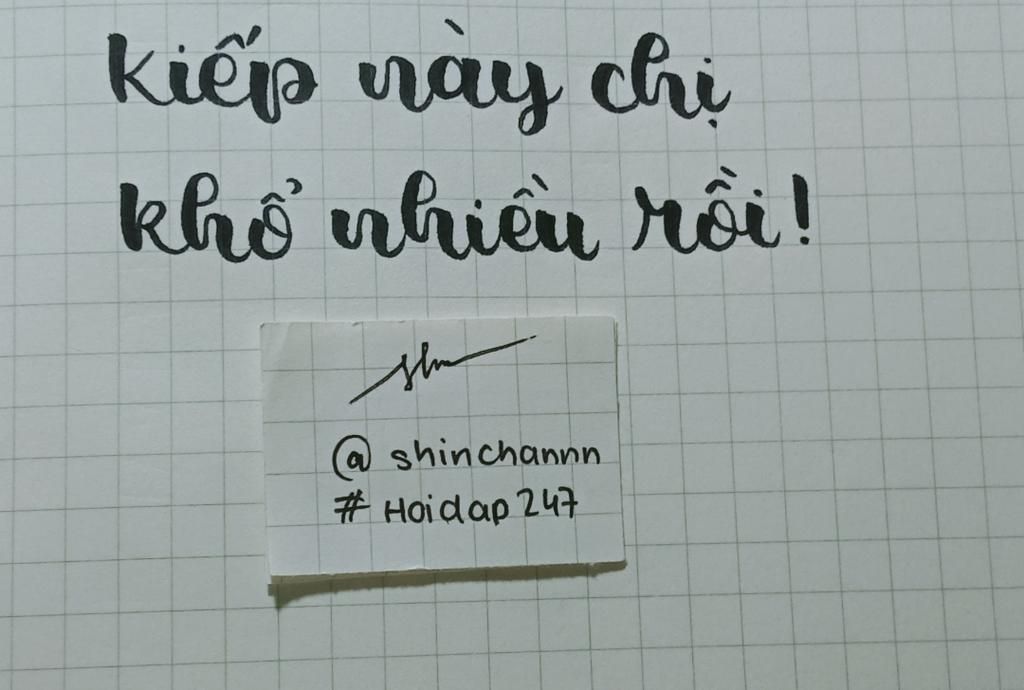 Kiếp này chị
khổ nhiều rồi!
@ shinchannn
# Hoidap 247